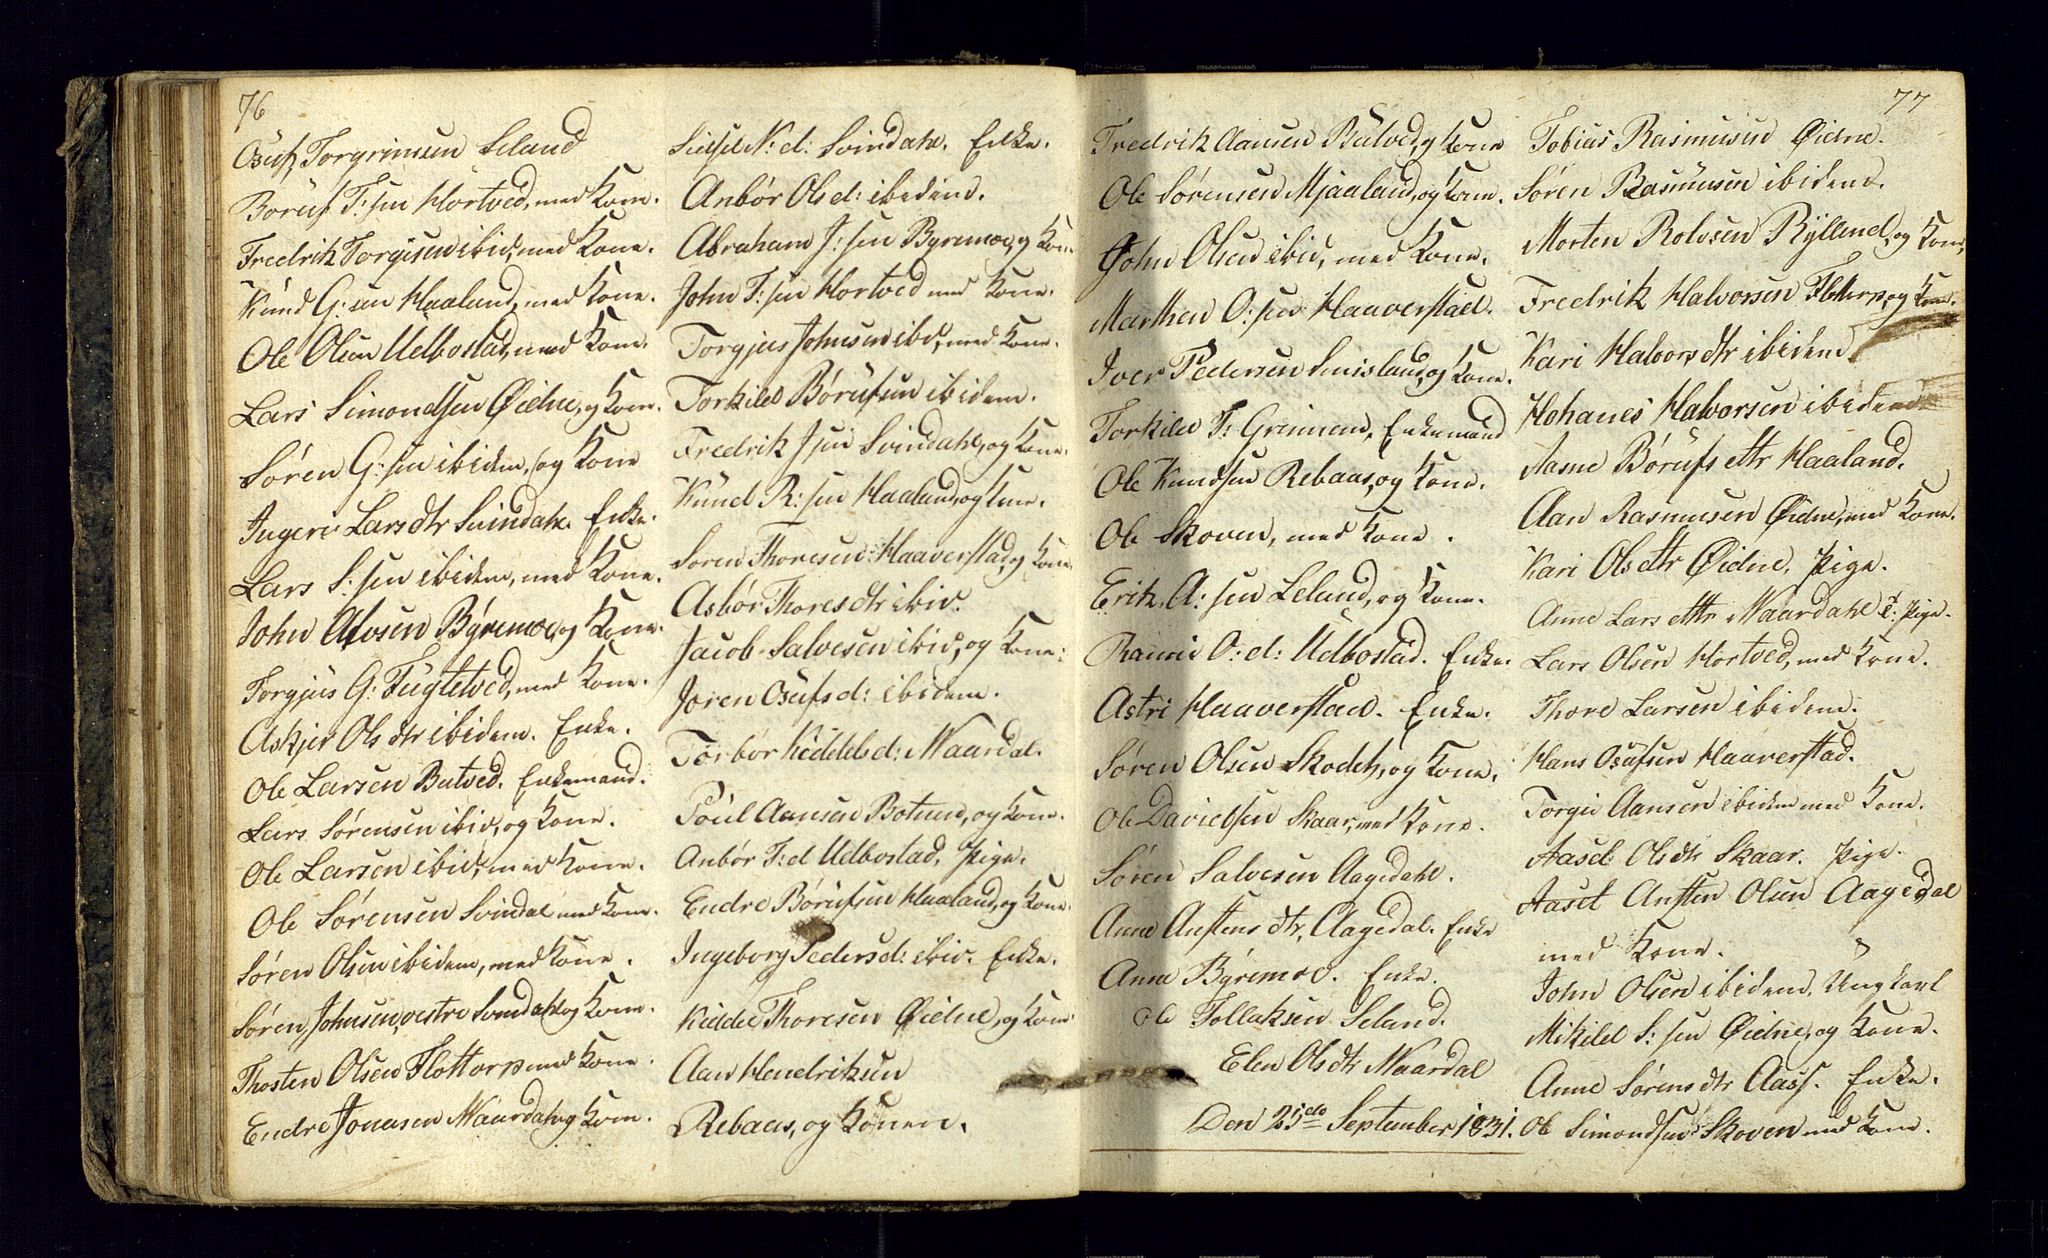 76
Osuf Torgrimsen Seland
Børuf T:sen Hortved, med Kone.
Fredrik Torgisen ibid, med Kone.
Knud G:sen Haaland, med Kone.
Ole Olsen Udbostad, med Kone.
Lars Simondsen Øidne, og Kone.
Søren G:sen ibidem, og Kone
Ingeri Larsdtr Svindahl. Enke.
Lars S:sen ibidem, med Kone.
John Alvsen Byremoe, og Kone.
Torgjus G: Fugletved, med Kone.
Askjer Olsdtr ibidem. Enke.
Ole Larsen Butved. Enkemand.
Lars Sørensen ibid, og Kone.
Ole Larsen ibid, med Kone.
Ole Sørensen Svindal med Kone.
Søren Olsen ibidem, med Kone.
Søren Johnsen, vestre Svindahl og Kone.
Thosten Olsen Flottorp med Kone.
Endre Jonasen Waardahl og Kone.
Sissel N:d: Svindahl. Enke.
Anbør Olsd: ibidem.
Abraham J:sen Byremoe, og Kone.
John T:sen Hortved med Kone.
Torgjus Johnsen ibd, med Kone.
Torkild Børufsen ibidem.
Fredrik Jsen Svindahl, og Kone.
Knud R:sen Haaland, og Kone.
Søren Thoresen Haaverstad, og Kone.
Asbør Thoresdtr ibid.
Jacob Salvesen ibid, og Kone.
Joren Osufsd: ibidem.
Torbør Keddelsd: Waardal.
Poul Aansen Botund, og Kone.
Anbør T:d Udbostad, Pige.
Endre Børufsen Haaland, og Kone.
Ingeborg Pedersd: ibid. Enke.
Keddel Thoresen Øidne, og Kone.
Aan Hendriksen
Rebaas, og Konen.
77
Fredrik Aansen Butved, og Kone
Ole Sørensen Mjaaland, og Kone.
John Olsen ibid, med Kone.
Marthen O:sen Haaverstad.
Iver Pedersen Smisland, og Kone.
Torkild T: Grimmem, Enkemand
Ole Knudsen Rebaas, og Kone.
Ole Skoven, med Kone.
Erik A:sen Leland, og Kone.
Rannei O:d: Udbostad. Enke.
Astri Haaverstad. Enke.
Søren Olsen Skodeh, og Kone.
Ole Davidsen Skaar, med Kone.
Søren Salvesen Aagedahl.
Anne Austensdtr, Aagedal. Enke
Anne Byremoe. Enke.
Ole Tollaksen Seland.
Elen Olsdtr Waardal
Den 25de September 1831.
Tobias Rasmusen Øidne.
Søren Rasmusen ibidem.
Morten Rolvsen Ryllend, og Kone.
Fredrik Halvorsen Flottorp, og Kone.
Kari Halvorsdtr ibidem
Johanes Halvorsen ibidem
Aasne Børufsdtr Haaland.
Aan Rasmusen Øidne, med Kone.
Kari Olsdtr Øidne. Pige.
Anne Larsdttr Waardahl Pige.
Lars Olsen Hortved, med Kone.
Thore Larsen ibidem.
Hans Osufsen Haaverstad.
Torgie Aansen ibidem med Kone.
Aasel Olsdtr Skaar. Pige.
Aasel Austen Olsen Aagedal
med Kone.
John Olsen ibidem. Ungkarl
Mikild S:sen Øidne, og Kone.
Anne Sørensdtr Aass. Enke.
Ole Simondsen Skoven med Kone.